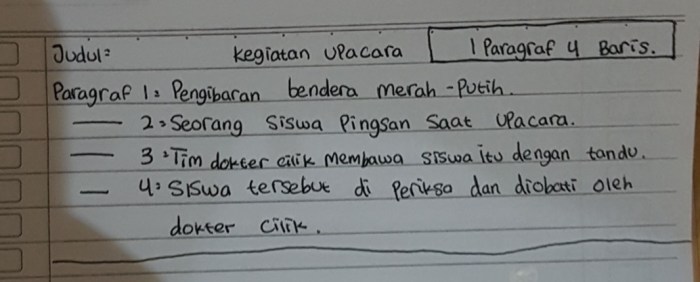 Judul: Kegiatan Upacara 1 Paragraf 4 Baris.
Paragraf 1: Pengibaran bendera merah-Putih.
— 2: Seorang Siswa Pingsan Saat Upacara.
— 3: Tim dokter cilik Membawa siswa itu dengan tandu.
— 4: Siswa tersebut di Periksa dan diobati oleh
dokter cilik.